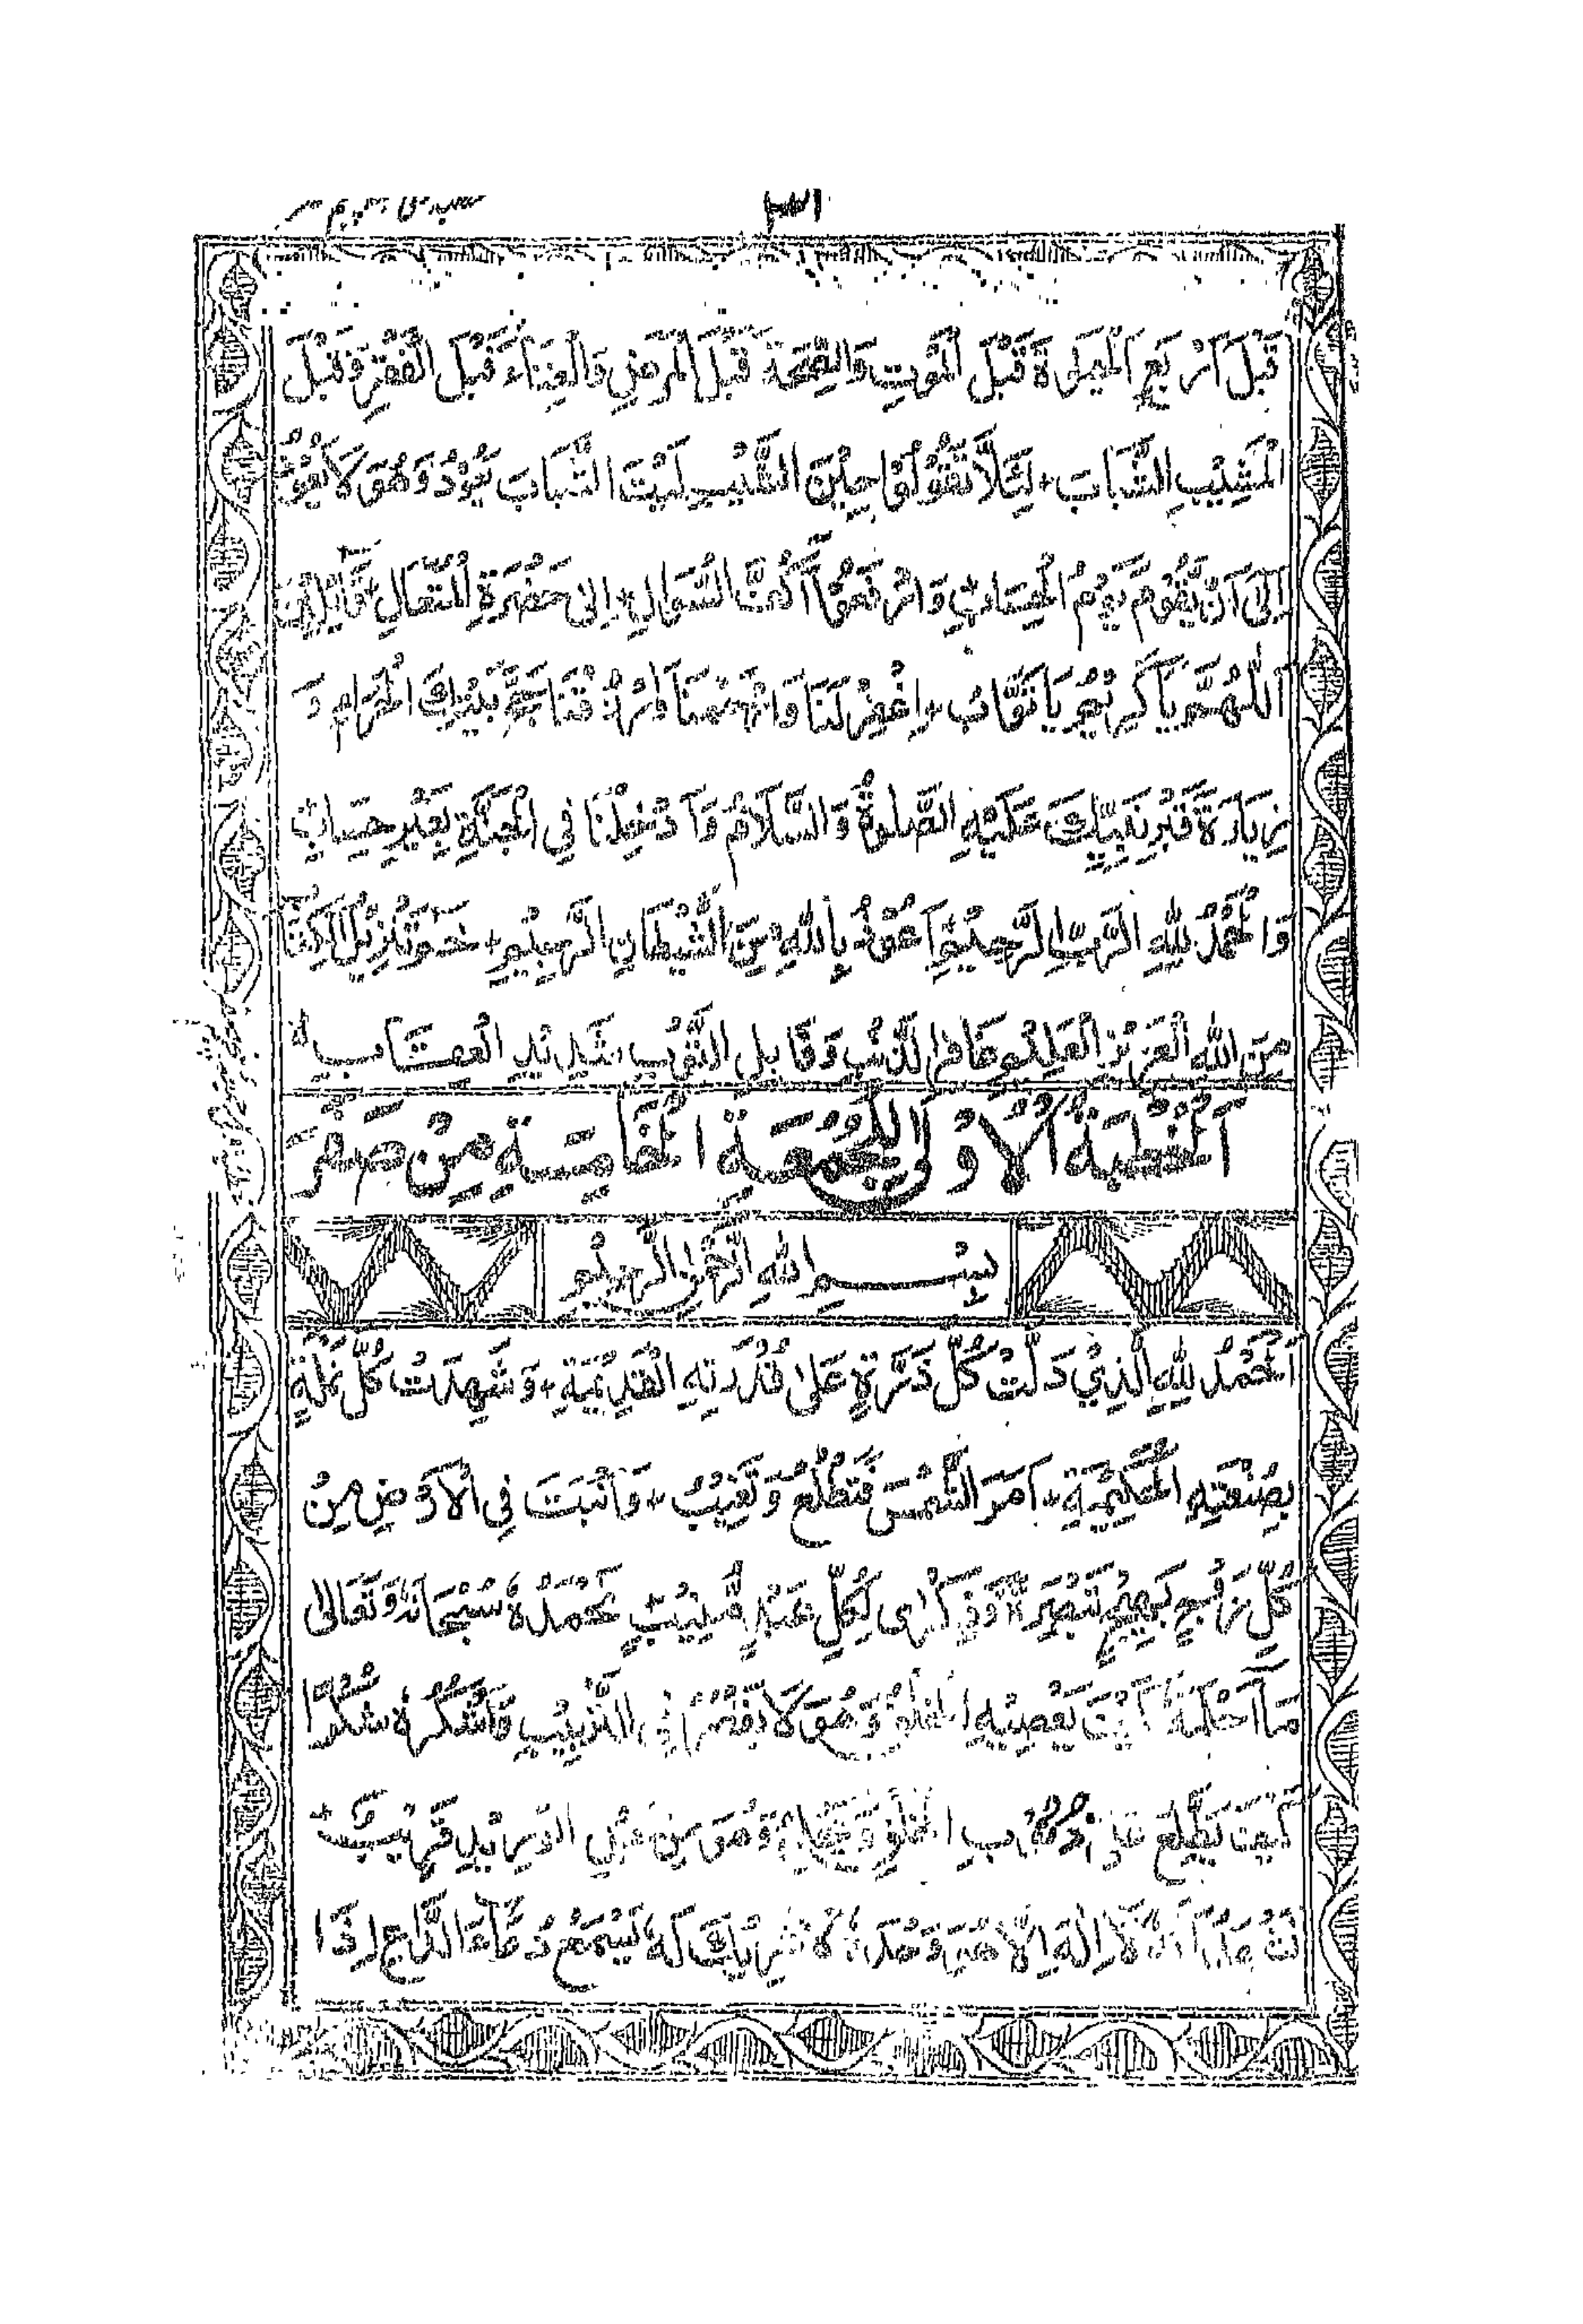 ٣١
قَبْلَ اَرْبَعٍ اَلْحَيٰوةَ قَبْلَ الْمَوْتِ وَالصِّحَّةَ قَبْلَ الْمَرَضِ وَالْغِنَاءَ قَبْلَ الْفَقْرِ وَقَبْلَ
الْمَشِيْبِ الشَّبَابَ + لِئَلَّا تَقُوْلُوْا حِيْنَ الشَّيْبِ لَيْتَ الشَّبَابَ يَعُوْدُ وَهُوَ لَا يَعُوْدُ
اِلٰى اَنْ يَّقُوْمَ يَوْمُ الْحِسَابِ وَارْفَعُوْا اَكُفَّ السُّوَالِ + اِلٰى حَضْرَةِ الْمُتَعَالِ + قَائِلِيْنَ
اَللّٰهُمَّ يَا كَرِيْمُ يَا تَوَّابُ + اِغْفِرْ لَنَا وَارْحَمْنَا وَارْزُقْنَا حَجَّ بَيْتِكَ الْحَرَامِ وَ
زِيَارَةَ قَبْرِ نَبِيِّكَ عَلَيْهِ الصَّلٰوةُ وَالسَّلَامُ وَاَدْخِلْنَا فِي الْجَنَّةِ بِغَيْرِ حِسَابٍ
وَالْحَمْدُ لِلّٰهِ الرَّبِّ الرَّحِيْمِ اَعُوْذُ بِاللّٰهِ مِنَ الشَّيْطَانِ الرَّجِيْمِ + حٰمٓ تَنْزِيْلُ الْكِتٰبِ
مِنَ اللّٰهِ الْعَزِيْزِ الْعَلِيْمِ غَافِرِ الذَّنْبِ وَقَابِلِ التَّوْبِ شَدِيْدِ الْعِقَابِ
اَلْخُطْبَةُ الْاُوْلٰى لِلْجُمُعَةِ الْخَامِسَةِ مِنْ صَفَرَ
بِسْمِ اللّٰهِ الرَّحْمٰنِ الرَّحِيْمِ
اَلْحَمْدُ لِلّٰهِ الَّذِيْ دَلَّتْ كُلُّ ذَرَّةٍ عَلٰى قُدْرَتِهِ الْقَدِيْمَةِ + وَشَهِدَتْ كُلُّ نَمْلَةٍ
بِصُنْعَتِهِ الْحَكِيْمَةِ + اَمَرَ الشَّمْسَ فَتَطْلُعُ وَتَغِيْبُ + وَاَنْبَتَ فِي الْاَرْضِ مِنْ
كُلِّ زَوْجٍ بَهِيْجٍ تَبْصِرَةً وَّذِكْرٰى لِكُلِّ عَبْدٍ مُّنِيْبٍ نَحْمَدُهٗ سُبْحَانَهٗ وَتَعَالٰى
مَا اَحْلَمَهٗ كَيْفَ يَعْصِيْهِ الْخَلْقُ وَهُوَ لَا يَقْصُرُ فِي التَّرْبِيْبِ وَنَشْكُرُهٗ شُكْرًا
كَيْفَ يَطَّلِعُ عَلٰى الْخَلْقِ وَهُوَ مِنْ حَبْلِ الْوَرِيْدِ قَرِيْبٌ
نَشْهَدُ اَنْ لَّا اِلٰهَ اِلَّا هُوَ وَحْدَهٗ لَا شَرِيْكَ لَهٗ يَسْمَعُ دُعَاءَ الدَّاعِ اِذَا